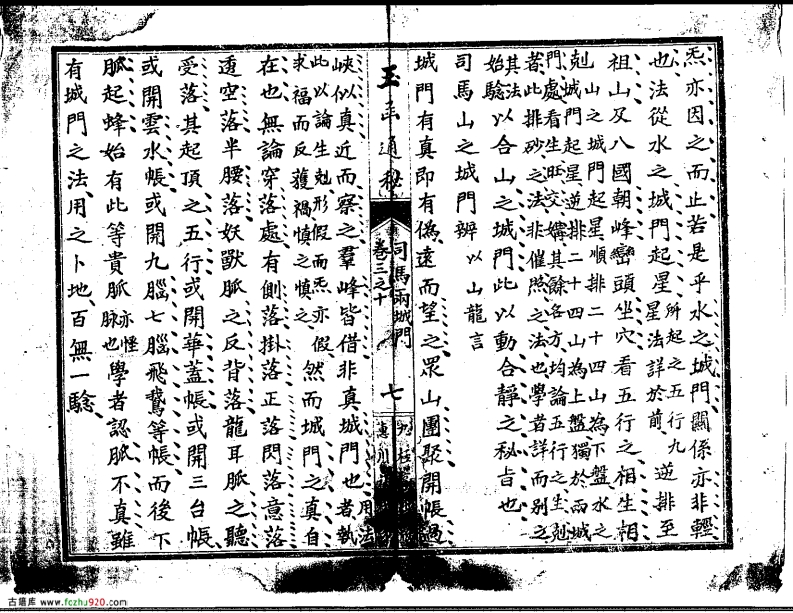 炁亦因之而止若是乎水之城門關係亦非輕
也法從水之城門起星星法詳於前所起之五行九逆排至
祖山及八國朝峰巒頭坐穴看五行之相生相
剋山之城門起星順排二十四山為下盤水之
城門起星逆排二十四山為上盤獨於兩城
門處看生旺交媾其餘各方均論五行之生剋
者此排砂之法非催煞之法也學者詳而別之
其法始驗以合山之城門此以動合靜之秘旨也
司馬山之城門辨以山龍言
城門有真即有偽遠而望之眾山團聚開帳過
玉函通秘
卷三之十
司馬兩城門
七
峽似真近而察之羣峰皆借非真城門也者執用法
此以論生剋形假而炁亦假然而城門之真自
求福而反獲禍慎之慎之
在也無論穿落處有側落掛落正落閃落意落
透空落半腰落妖獸脈之反背落龍耳脈之聽
受落其起頂之五行或開華蓋帳或開三台帳
或開雲水帳或開九腦七腦飛鵝等帳而後下
脈起蜂始有此等貴脈亦怪脈也學者認脈不真雖
有城門之法用之卜地百無一驗
古籍库 www.fczhu920.com